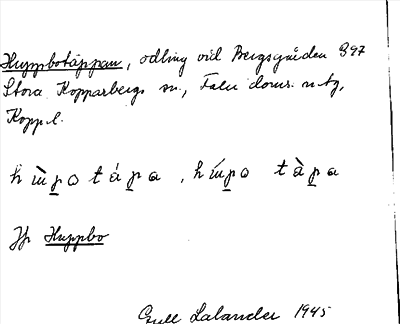 Huppbotäppan, odling vid Bergsgården 397
Stora Kopparbergs sn., Falu doms. n. tg,
Kopp. l.
hùpo tápa, húpo tàpa
Jfr Huppbo
Gull Lalander 1945